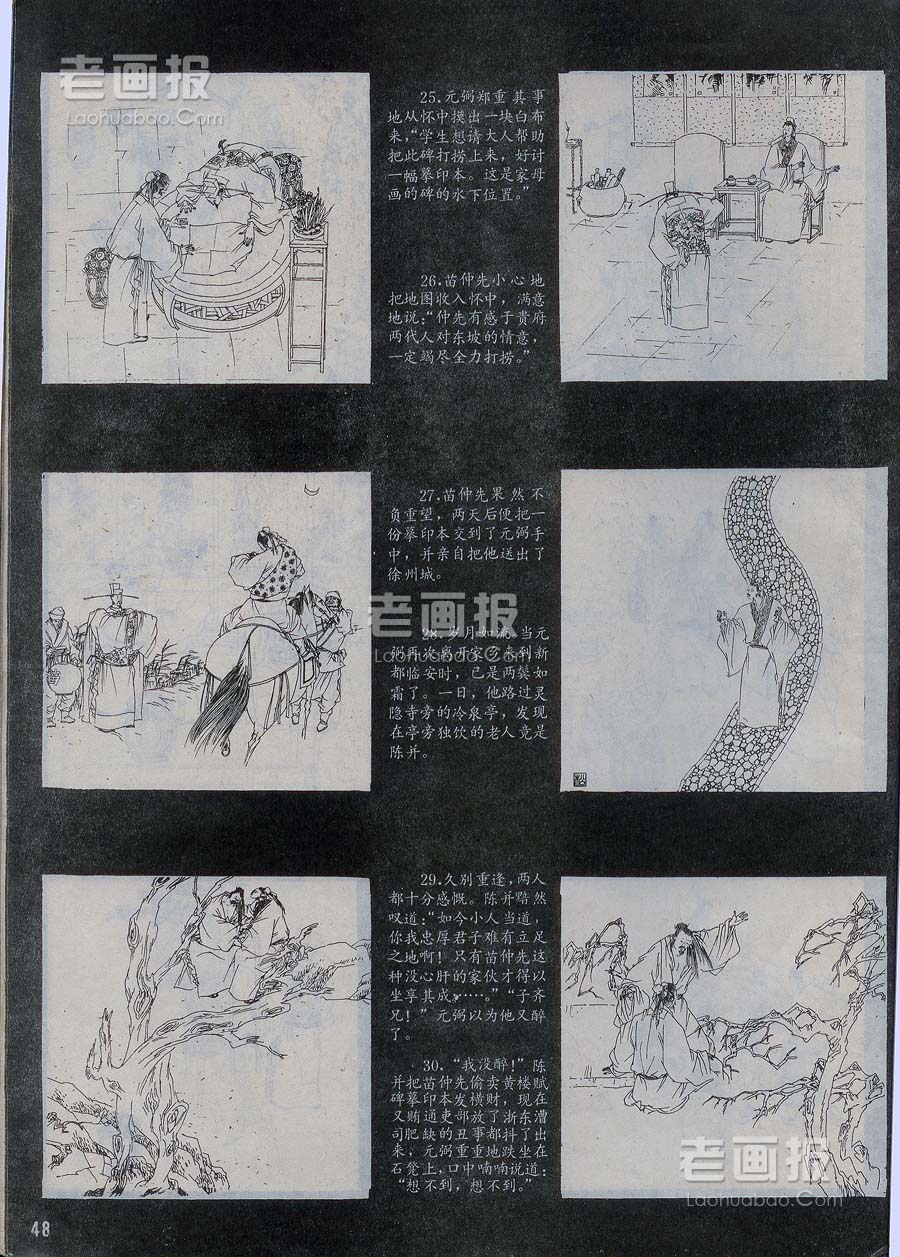 老画报
Laohuabao.Com
25.元弼郑重其事
地从怀中摸出一块白布
来，“学生想请大人帮助
把此碑打捞上来，好讨
一幅摹印本。这是家母
画的碑的水下位置。”
26.苗仲先小心地
把地图收入怀中，满意
地说：“仲先有感于贵府
两代人对东坡的情意，
一定竭尽全力打捞。”
27.苗仲先果然不
负重望，两天后便把一
份摹印本交到了元弼手
中，并亲自把他送出了
徐州城。
老画报
Laohuabao.Com
28.岁月如流，当元
弼再次离开家乡来到新
都临安时，已是两鬓如
霜了。一日，他路过灵
隐寺旁的冷泉亭，发现
在亭旁独饮的老人竟是
陈并。
29.久别重逢，两人
都十分感慨。陈并黯然
叹道：“如今小人当道，
你我忠厚君子难有立足
之地啊！只有苗仲先这
种没心肝的家伙才得以
坐享其成……。”“子齐
兄！”元弼以为他又醉
了。
30.“我没醉！”陈
并把苗仲先偷卖黄楼赋
碑摹印本发横财，现在
又贿通吏部放了浙东漕
司肥缺的丑事都抖了出
来，元弼重重地跌坐在
石凳上，口中喃喃说道：
“想不到，想不到。”
老画报
Laohuabao.Com
48